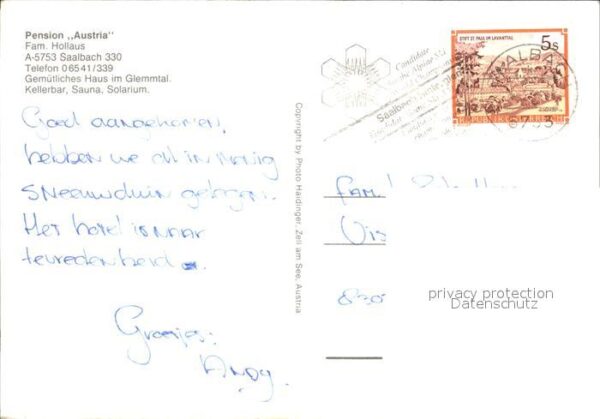 Pension „Austria"
Fam. Hollaus
A-5753 Saalbach 330
Telefon 06541/339
Gemütliches Haus im Glemmtal.
Kellerbar, Sauna, Solarium.
Goed aangekomen,
hebben we al in menig
sneeuwduin gelegen.
Het hotel is naar
tevredenheid.
Groetjes:
Andy
Copyright by Photo Haidinger, Zell am See, Austria
STIFT ST. PAUL IM LAVANTTAL
5s
REPUBLIK ÖSTERREICH
Candidate
Saalbach
Fam.
privacy protection
Datenschutz